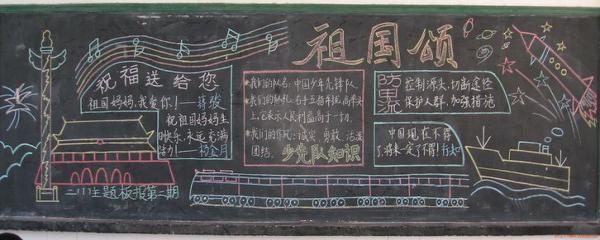 祖国颂
祝福送给您
祖国妈妈,我爱你!
祝祖国妈妈生
日快乐,永远充满
活力!
二(1)主题板报第二期
我们的队名:中国少年先锋队。
我们的队礼:右手五指并拢,高举头
上,它表示人民利益高于一切。
我们的作风:诚实、勇敢、活泼、
团结。
少先队知识
防甲流
控制源头,切断途径
保护人群,加强措施
中国现在不得
了,将来一定了不得!